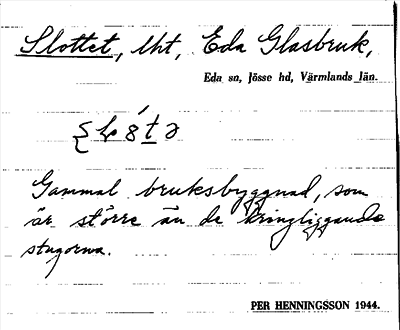 Slottet, lht, Eda Glasbruk,
Eda sn, Jösse hd, Värmlands län.
Gammal bruksbyggnad, som
är större än de kringliggande
stugorna.
PER HENNINGSSON 1944.